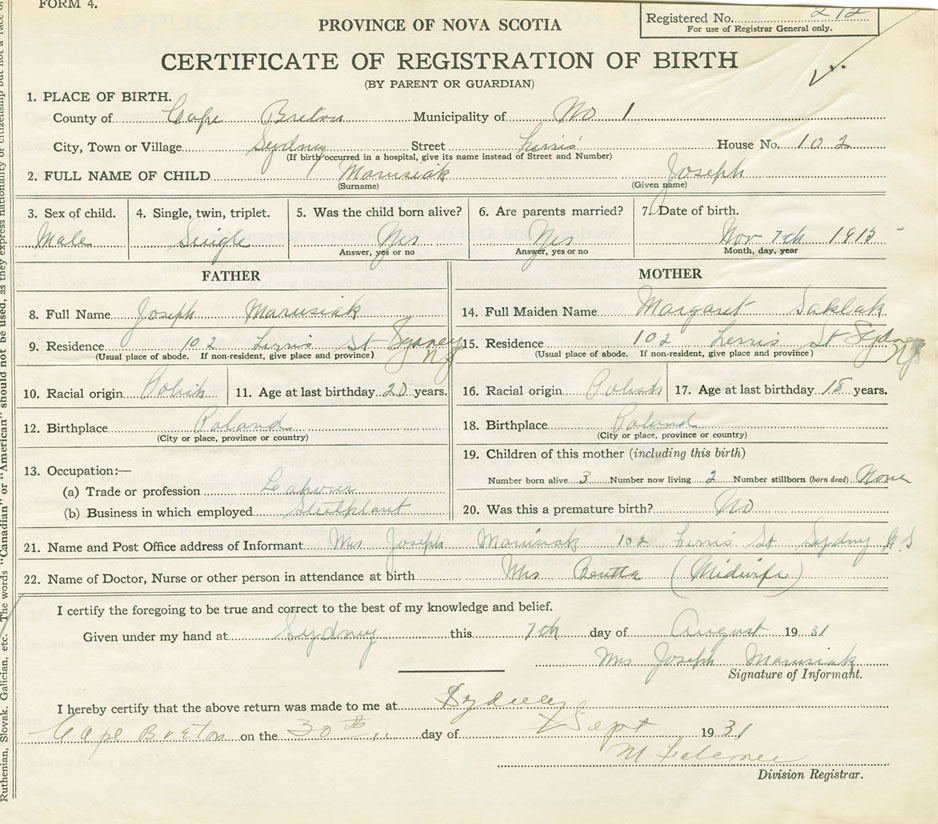 FORM 4.
Registered No. 212
For use of Registrar General only.
PROVINCE OF NOVA SCOTIA
CERTIFICATE OF REGISTRATION OF BIRTH
(BY PARENT OR GUARDIAN)
1. PLACE OF BIRTH.
County of Cape Breton Municipality of No 1
City, Town or Village Sydney Street House No. 102
(If birth occurred in a hospital, give its name instead of Street and Number)
2. FULL NAME OF CHILD Marusiak Joseph
(Surname) (Given name)
3. Sex of child. 4. Single, twin, triplet. 5. Was the child born alive? 6. Are parents married? 7. Date of birth.
Male Single Yes Yes Nov 7th 1915
Answer, yes or no Answer, yes or no Month, day, year
FATHER
8. Full Name Joseph Marusiak
9. Residence 102 St Sydney NS
(Usual place of abode. If non-resident, give place and province)
10. Racial origin Polish 11. Age at last birthday 20 years.
12. Birthplace Poland
(City or place, province or country)
13. Occupation:—
(a) Trade or profession Labour
(b) Business in which employed Steelplant
MOTHER
14. Full Maiden Name Margaret Saklak
15. Residence 102 St Sydney NS
(Usual place of abode. If non-resident, give place and province)
16. Racial origin Polish 17. Age at last birthday 18 years.
18. Birthplace Poland
(City or place, province or country)
19. Children of this mother (including this birth)
Number born alive 3 Number now living 2 Number stillborn (born dead) None
20. Was this a premature birth? No
21. Name and Post Office address of Informant Mrs Joseph Marusiak 102 St Sydney N S
22. Name of Doctor, Nurse or other person in attendance at birth Mrs (Midwife)
I certify the foregoing to be true and correct to the best of my knowledge and belief.
Given under my hand at Sydney this 7th day of August 1931
Mrs Joseph Marusiak
Signature of Informant.
I hereby certify that the above return was made to me at Sydney
Cape Breton on the 30th day of Sept 1931
M
Division Registrar.
Ruthenian, Slovak, Galician, etc. The words "Canadian" or "American" should not be used, as they express nationality or citizenship but not a race of